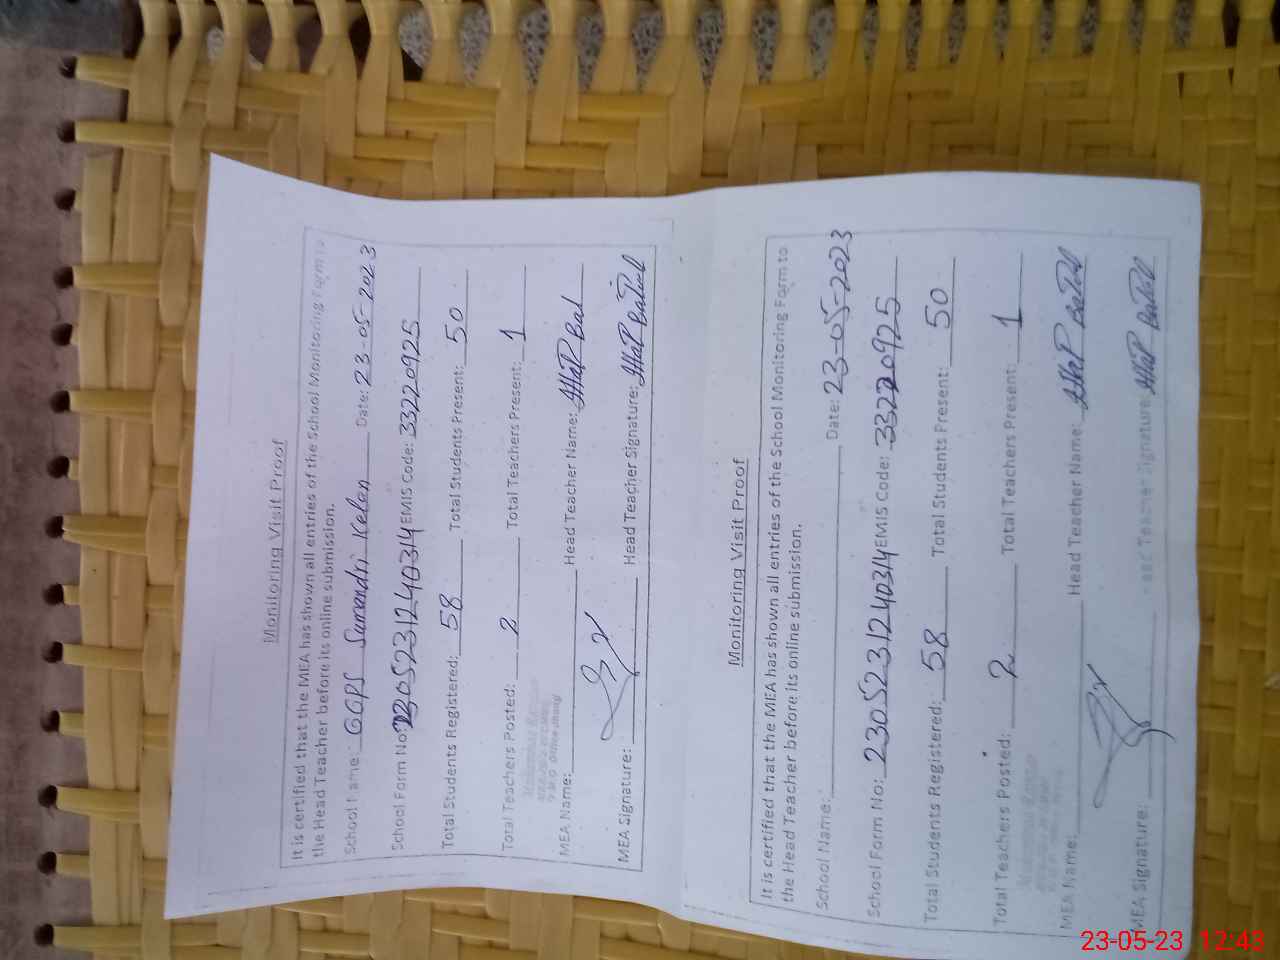 Monitoring Visit Proof
It is certified that the MEA has shown all entries of the School Monitoring Form to
the Head Teacher before its online submission.
School Name: GGPS Samandri Kalan Date: 23-05-2023
School Form No: 2305231240314 EMIS Code: 33220925
Total Students Registered: 58 Total Students Present: 50
Total Teachers Posted: 2 Total Teachers Present: 1
MEA Name: Head Teacher Name:
MEA Signature: Head Teacher Signature:
Monitoring Visit Proof
It is certified that the MEA has shown all entries of the School Monitoring Form to
the Head Teacher before its online submission.
School Name: Date: 23-05-2023
School Form No: 2305231240314 EMIS Code: 33220925
Total Students Registered: 58 Total Students Present: 50
Total Teachers Posted: 2 Total Teachers Present: 1
MEA Name: Head Teacher Name:
MEA Signature: Teacher Signature:
23-05-23 12:43